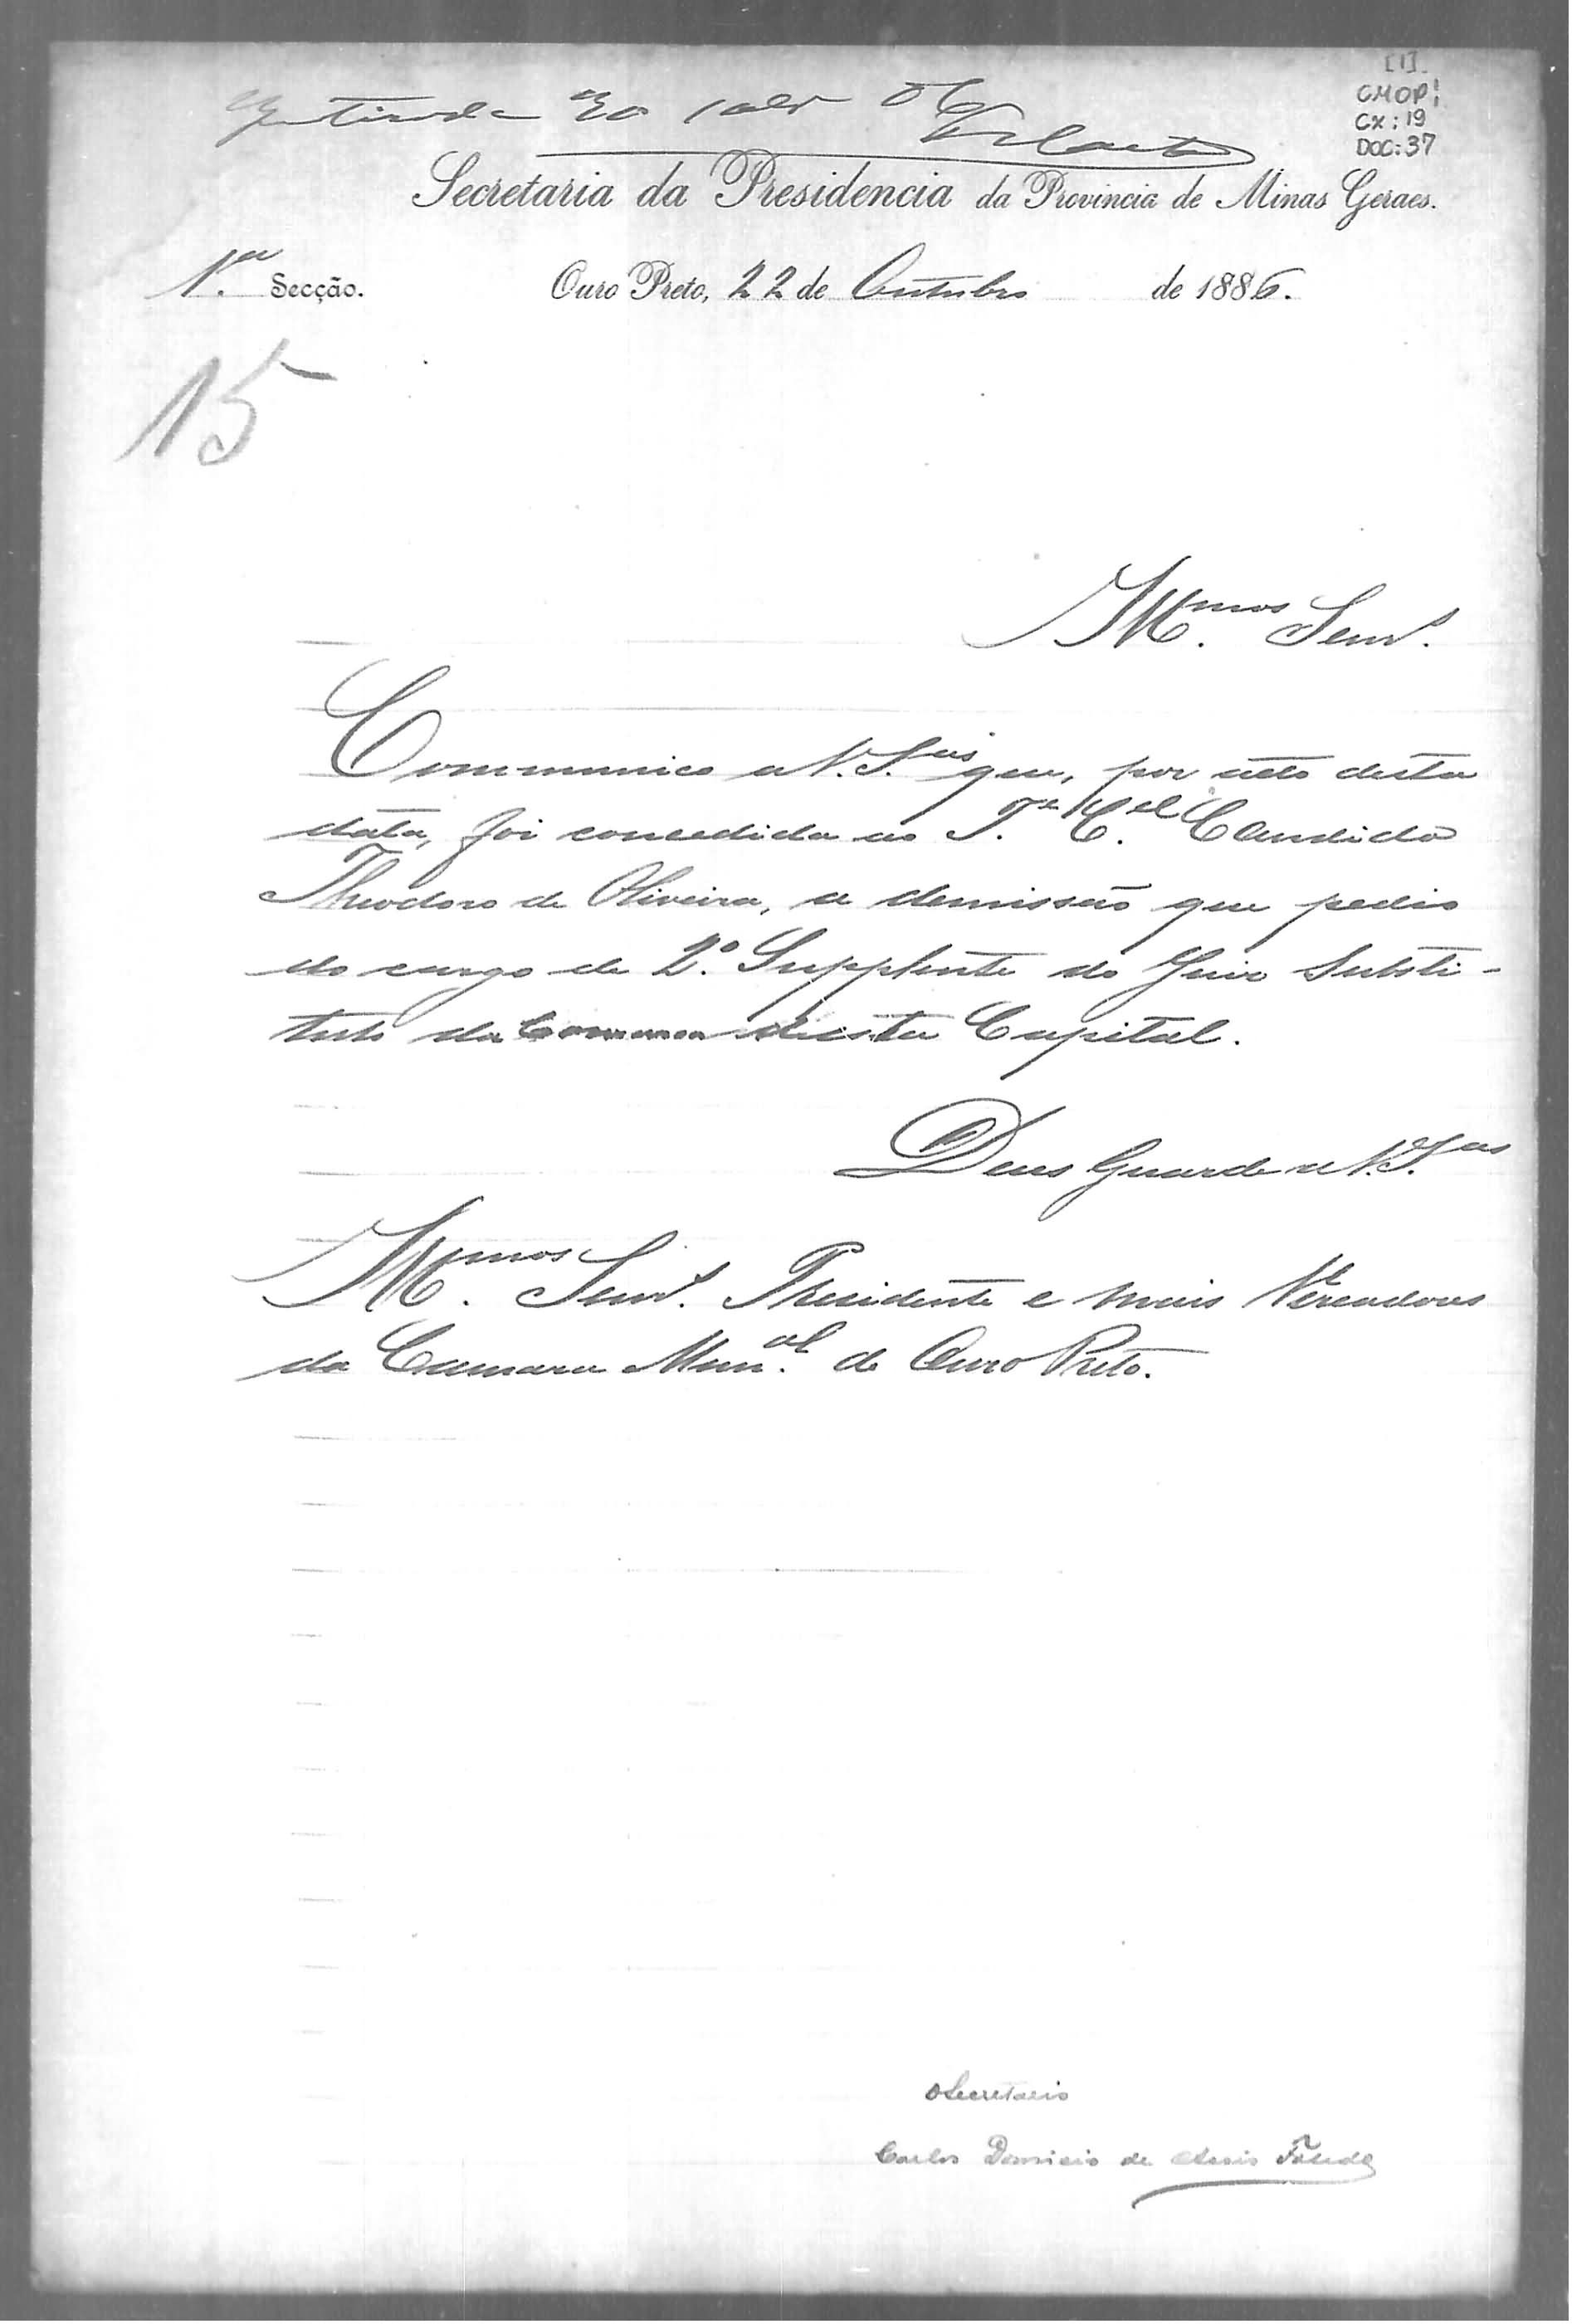 [1].
CMOP:
CX: 19
DOC: 37
Secretaria da Presidencia da Provincia de Minas Geraes.
1.ª Secção. Ouro Preto, 22 de Outubro de 1886.
15
Ill.mos Senr.s
Communico a V. S.as que, por acto desta
data, foi concedida ao T.e C.el Candido
Theodoro de Oliveira, a demissão que pedio
do cargo de 2.º Supplente do Juiz Substi-
tuto da Comarca desta Capital.
Deus Guarde a V. S.as
Ill.mos Senr.s Presidente e mais Vereadores
da Camara Mun.al de Ouro Preto.
O Secretario
Carlos de Assis Toledo